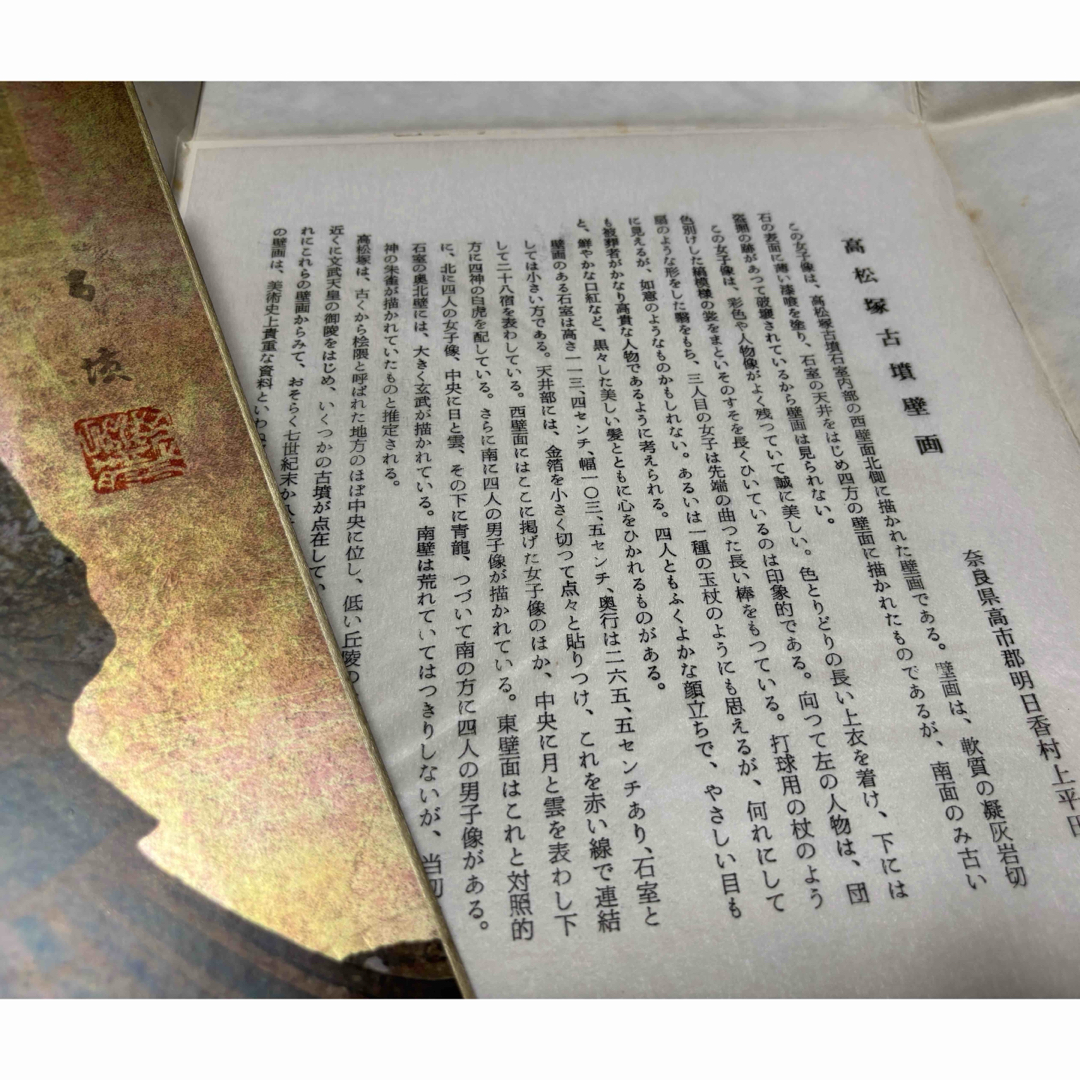 高松塚古墳壁画
奈良県高市郡明日香村上平田
この女子像は、高松塚古墳石室内部の西壁面北側に描かれた壁画である。壁画は、軟質の凝灰岩切
石の表面に薄い漆喰を塗り、石室の天井をはじめ四方の壁面に描かれたものであるが、南面のみ古い
盗掘の跡があつて破壊されているから壁画は見られない。
この女子像は、彩色や人物像がよく残つていて誠に美しい。色とりどりの長い上衣を着け、下には
色別けした縞模様の裳をまといそのすそを長くひいているのは印象的である。向つて左の人物は、団
扇のような形をした翳をもち、三人目の女子は先端の曲つた長い棒をもつている。打球用の杖のよう
に見えるが、如意のようなものかもしれない。あるいは一種の玉杖のようにも思えるが、何れにして
も被葬者がかなり高貴な人物であるように考えられる。四人ともふくよかな顔立ちで、やさしい目も
と、鮮やかな口紅など、黒々した美しい髪とともに心をひかれるものがある。
壁画のある石室は高さ一一三、四センチ、幅一〇三、五センチ、奥行は二六五、五センチあり、石室と
しては小さい方である。天井部には、金箔を小さく切つて点々と貼りつけ、これを赤い線で連結
して二十八宿を表わしている。西壁面にはここに掲げた女子像のほか、中央に月と雲を表わし下
方に四神の白虎を配している。さらに南に四人の男子像が描かれている。東壁面はこれと対照的
に、北に四人の女子像、中央に日と雲、その下に青龍、つづいて南の方に四人の男子像がある。
石室の奥北壁には、大きく玄武が描かれている。南壁は荒れていてはつきりしないが、当初
神の朱雀が描かれていたものと推定される。
高松塚は、古くから桧隈と呼ばれた地方のほぼ中央に位し、低い丘陵の
近くに文武天皇の御陵をはじめ、いくつかの古墳が点在して、
れにこれらの壁画からみて、おそらく七世紀末か
の壁画は、美術史上貴重な資料といわ